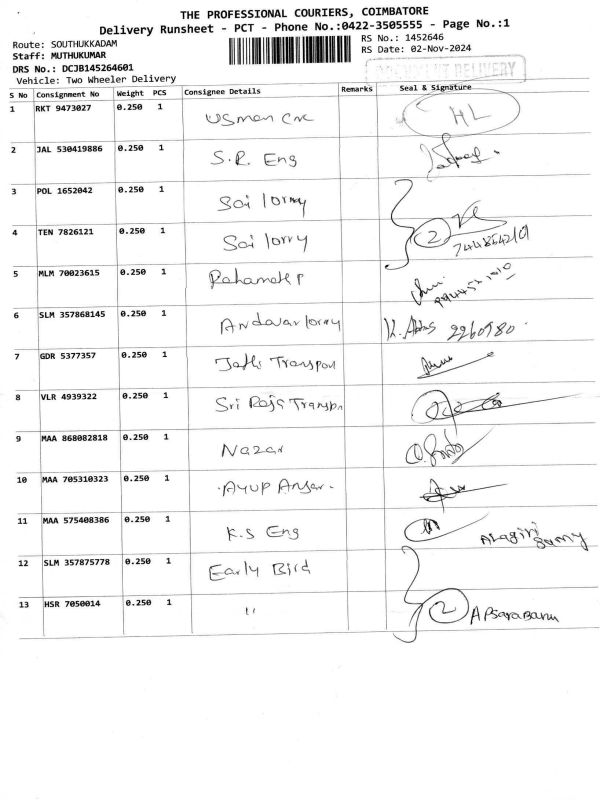 THE PROFESSIONAL COURIERS, COIMBATORE
Delivery Runsheet - PCT - Phone No.:0422-3505555 - Page No.:1
Route: SOUTHUKKADAM
RS No.: 1452646
Staff: MUTHUKUMAR
RS Date: 02-Nov-2024
DRS No.: DCJB145264601
DOCUMENT DELIVERY
Vehicle: Two Wheeler Delivery
S No Consignment No Weight PCS Consignee Details Remarks Seal & Signature
1 RKT 9473027 0.250 1 Usman HL
2 JAL 530419886 0.250 1 S.R. Eng
3 POL 1652042 0.250 1 Sai lorry
4 TEN 7826121 0.250 1 Sai lorry 2
5 MLM 70023615 0.250 1
6 SLM 357868145 0.250 1 Andavar lorry 2260980
7 GDR 5377357 0.250 1 Transport
8 VLR 4939322 0.250 1 Sri Raja Transpn
9 MAA 868082818 0.250 1 Nazar
10 MAA 705310323 0.250 1 Ayup Ansar.
11 MAA 575408386 0.250 1 K.S Eng Alagiri Samy
12 SLM 357875778 0.250 1 Early Bird
13 HSR 7050014 0.250 1 " 2 Apsarabanu